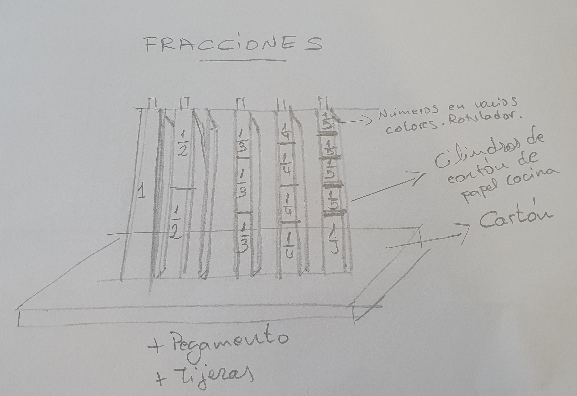 FRACCIONES
1
1/2
1/2
1/3
1/3
1/3
1/4
1/4
1/4
1/4
1/5
1/5
1/5
1/5
1/5
Números en varios
colores. Rotulador.
Cilindros de
cartón de
papel cocina
Cartón
+ Pegamento
+ Tijeras